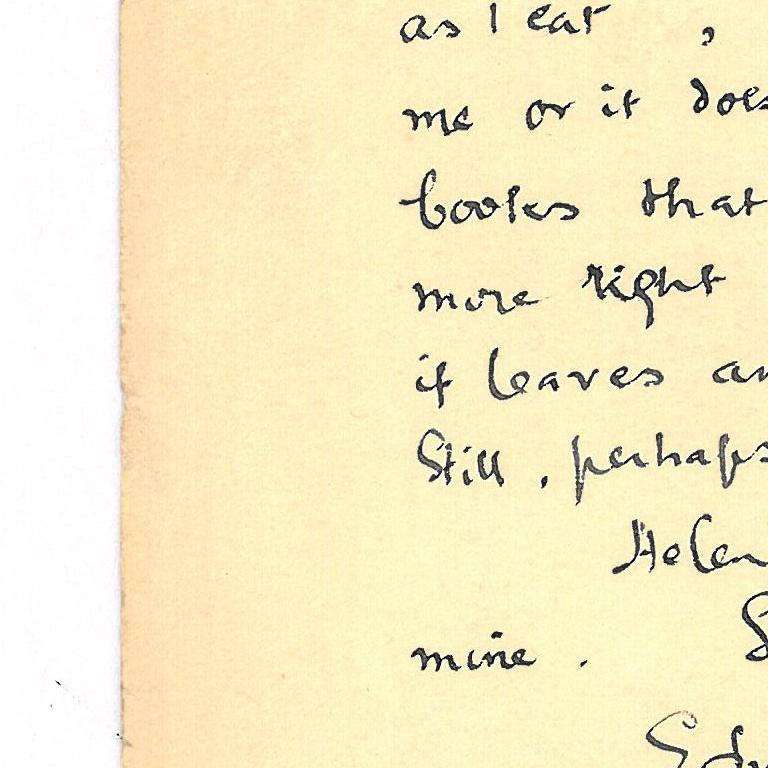 as I eat ,
me or it does
books that
more right
if leaves an
Still , perhaps
Helen
mine . S
Edw